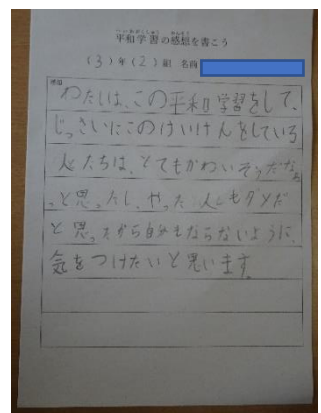 へいわがくしゅう かんそう か
平和学習の感想を書こう
(3)年(2)組 名前
わたしは、この平和学習をして、
じっさいにこのけいけんをしている
人たちは、とてもかわいそうだなぁ
、と思ったし、やった人もダメだ
と思ったから自分もならないように、
気をつけたいと思います。